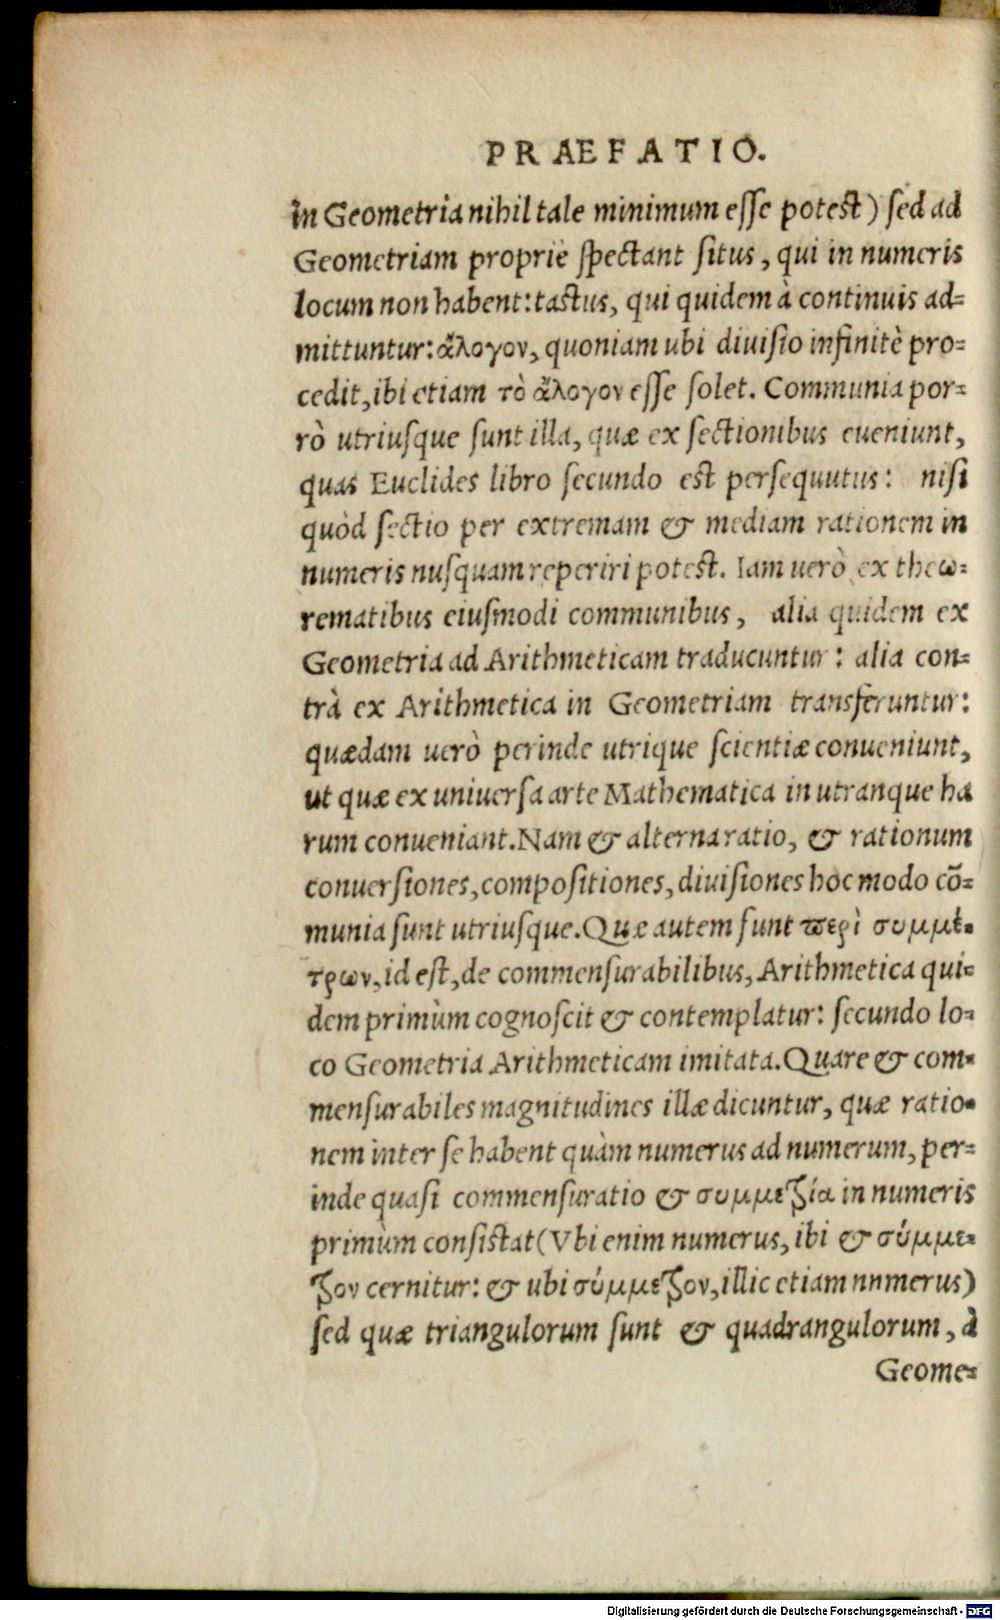 PRAEFATIO.
in Geometria nihil tale minimum esse potest) sed ad
Geometriam propriè spectant situs, qui in numeris
locum non habent: tactus, qui quidem à continuis ad-
mittuntur: ἄλογον, quoniam ubi diuisio infinitè pro-
cedit, ibi etiam τὸ ἄλογον esse solet. Communia por-
rò utriusque sunt illa, quæ ex sectionibus eueniunt,
quas Euclides libro secundo est persequutus: nisi
quòd sectio per extremam & mediam rationem in
numeris nusquam reperiri potest. Iam uerò ex theω-
rematibus eiusmodi communibus, alia quidem ex
Geometria ad Arithmeticam traducuntur: alia con-
trà ex Arithmetica in Geometriam transferuntur:
quædam uerò perinde utrique scientiæ conueniunt,
ut quæ ex uniuersa arte Mathematica in utranque ha
rum conueniant. Nam & alterna ratio, & rationum
conuersiones, compositiones, diuisiones hoc modo cō-
munia sunt utriusque. Quæ autem sunt περὶ συμμέ-
τρων, id est, de commensurabilibus, Arithmetica qui-
dem primùm cognoscit & contemplatur: secundo lo-
co Geometria Arithmeticam imitata. Quare & com-
mensurabiles magnitudines illæ dicuntur, quæ ratio-
nem inter se habent quàm numerus ad numerum, per-
inde quasi commensuratio & συμμετρία in numeris
primùm consistat (Vbi enim numerus, ibi & σύμμε-
τρον cernitur: & ubi σύμμετρον, illic etiam nnmerus)
sed quæ triangulorum sunt & quadrangulorum, à
Geome-
Digitalisierung gefördert durch die Deutsche Forschungsgemeinschaft - DFG